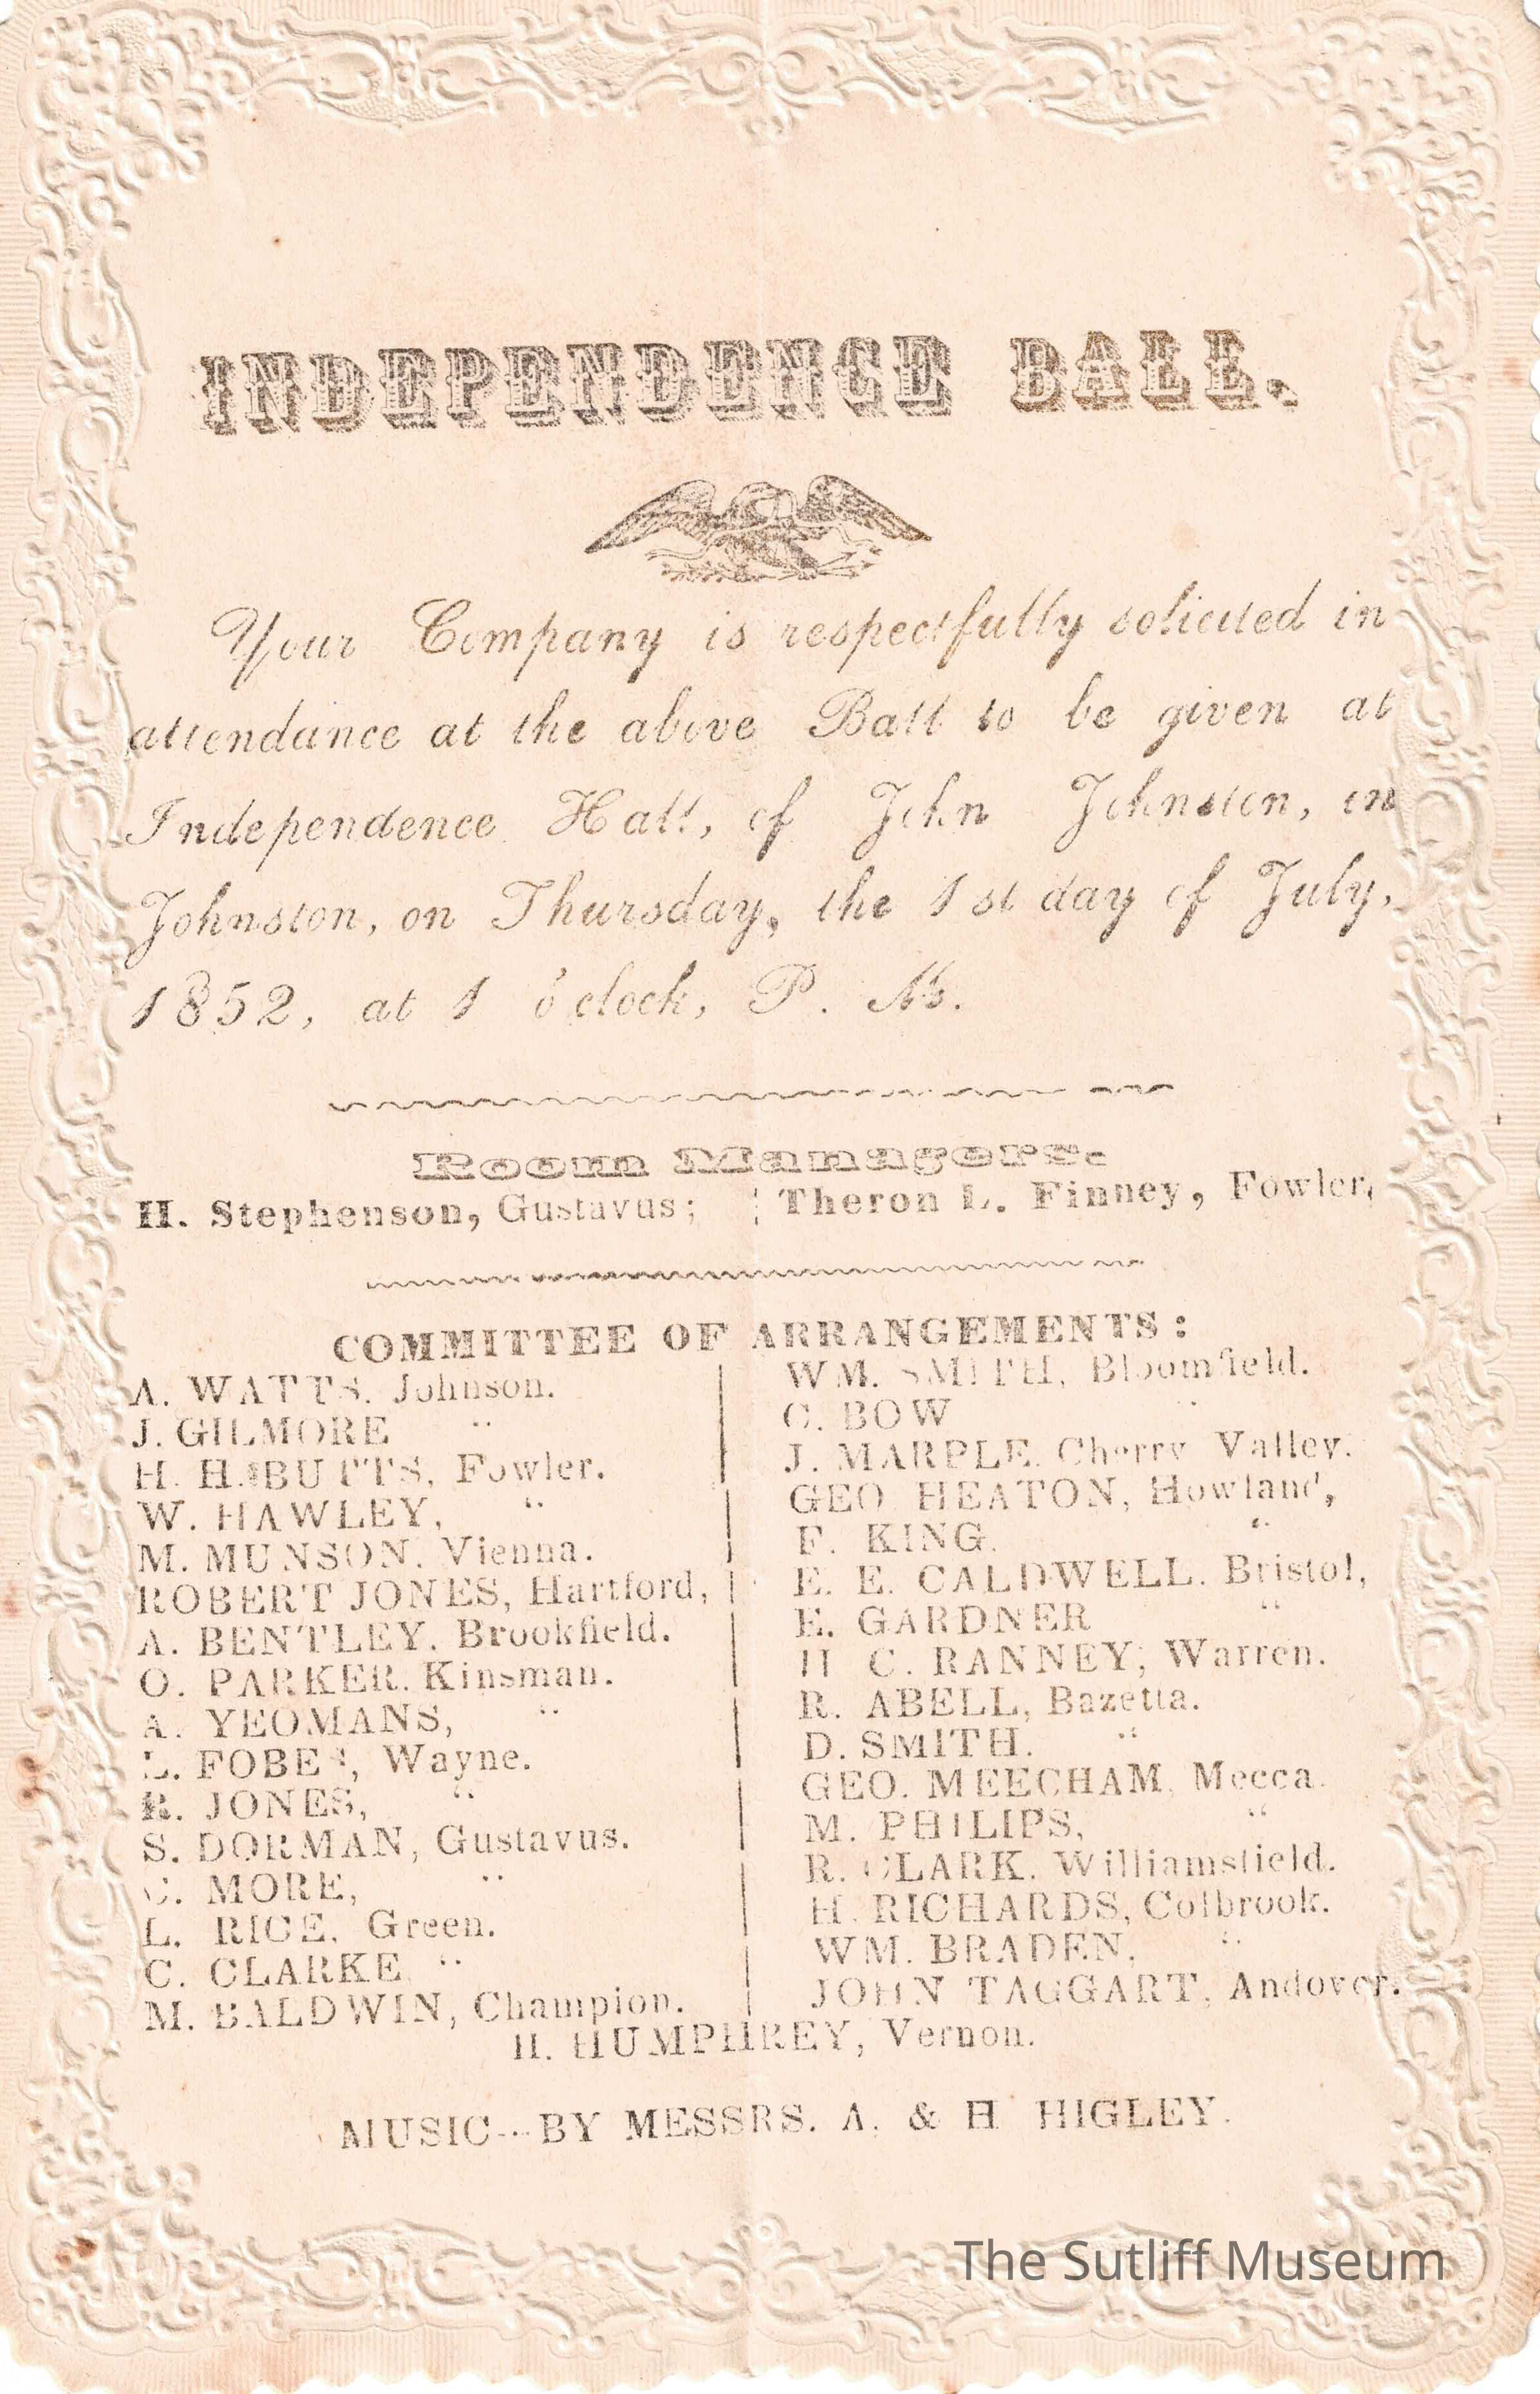 INDEPENDENCE BALL.
Your Company is respectfully solicited in
attendance at the above Ball to be given at
Independence Hall, of John Johnston, in
Johnston, on Thursday, the 1st day of July,
1852, at 1 o'clock, P. M.
Room Managers.
H. Stephenson, Gustavus; Theron L. Finney, Fowler,
COMMITTEE OF ARRANGEMENTS:
A. WATTS. Johnson.
J. GILMORE "
H. H. BUTTS, Fowler.
W. HAWLEY, "
M. MUNSON. Vienna.
ROBERT JONES, Hartford,
A. BENTLEY. Brookfield.
O. PARKER. Kinsman.
A. YEOMANS, "
L. FOBES, Wayne.
R. JONES, "
S. DORMAN, Gustavus.
C. MORE, "
L. RICE. Green.
C. CLARKE "
M. BALDWIN, Champion.
WM. SMITH, Bloomfield.
C. BOW "
J. MARPLE. Cherry Valley.
GEO HEATON, Howland,
F. KING. "
E. E. CALDWELL. Bristol,
E. GARDNER "
H C. RANNEY, Warren.
R. ABELL, Bazetta.
D. SMITH. "
GEO. MEECHAM, Mecca.
M. PHILIPS, "
R. CLARK. Williamsfield.
H. RICHARDS, Colbrook.
WM. BRADEN. "
JOHN TAGGART, Andover.
H. HUMPHREY, Vernon.
MUSIC--BY MESSRS. A. & H HIGLEY.
The Sutliff Museum